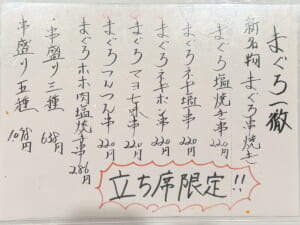 まぐろ一徹
新名物 まぐろ串焼き
まぐろ塩焼き串 220円
まぐろネギ塩串 220円
まぐろネギポン串 220円
まぐろマヨ七味串 220円
まぐろつんつん串 220円
まぐろホホ肉塩焼き串 286円
串盛り三種 638円
串盛り五種 1078円
立ち席限定!!